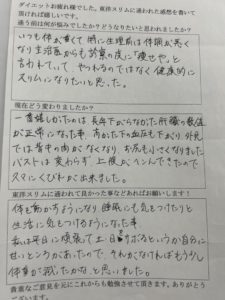 ダイエットお疲れ様でした。東洋スリムに通われた感想を書いて
頂ければ嬉しいです。
通う前は何が悩みでしたか？どうなりたいと思われましたか？
いつも体が重くて特に生理前は体調が悪く
なり主治医からも診察の度に「痩せや」と
言われていて やつれるのではなく健康的に
スリムになりたいと思った。
現在どう変わりましたか？
一番嬉しかったのは長年下がらなかった肝臓の数値
が正常になった事、高かった下の血圧も下がり 外見
では背中の肉がなくなり お尻も小さくなりました
バストは変わらず、上腹部がへんできたので
スマにくびれが出来ました。
東洋スリムに通われて良かった事などあればお願いします！
体を動かすようになり睡眠にも気をつけたりと
生活に気をつけるようになった事
私は平日に頑張って土日サボるというか自分に
甘いところがあったので、それがなければもう少し
体重が減ったかな、と思いました。
貴重なご意見を元にこれからも勉強させて頂きます。ありがとう
ございます。